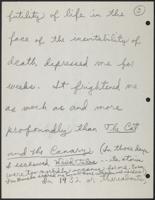 futility of life in the
③
face of the inevitability of
death depressed me for
weeks. It frightened me
as much as and more
profoundly than The Cat
and the Canary (In those days
I reviewed Weird Tales ... its stories
were too
In 1932 or thereabouts,